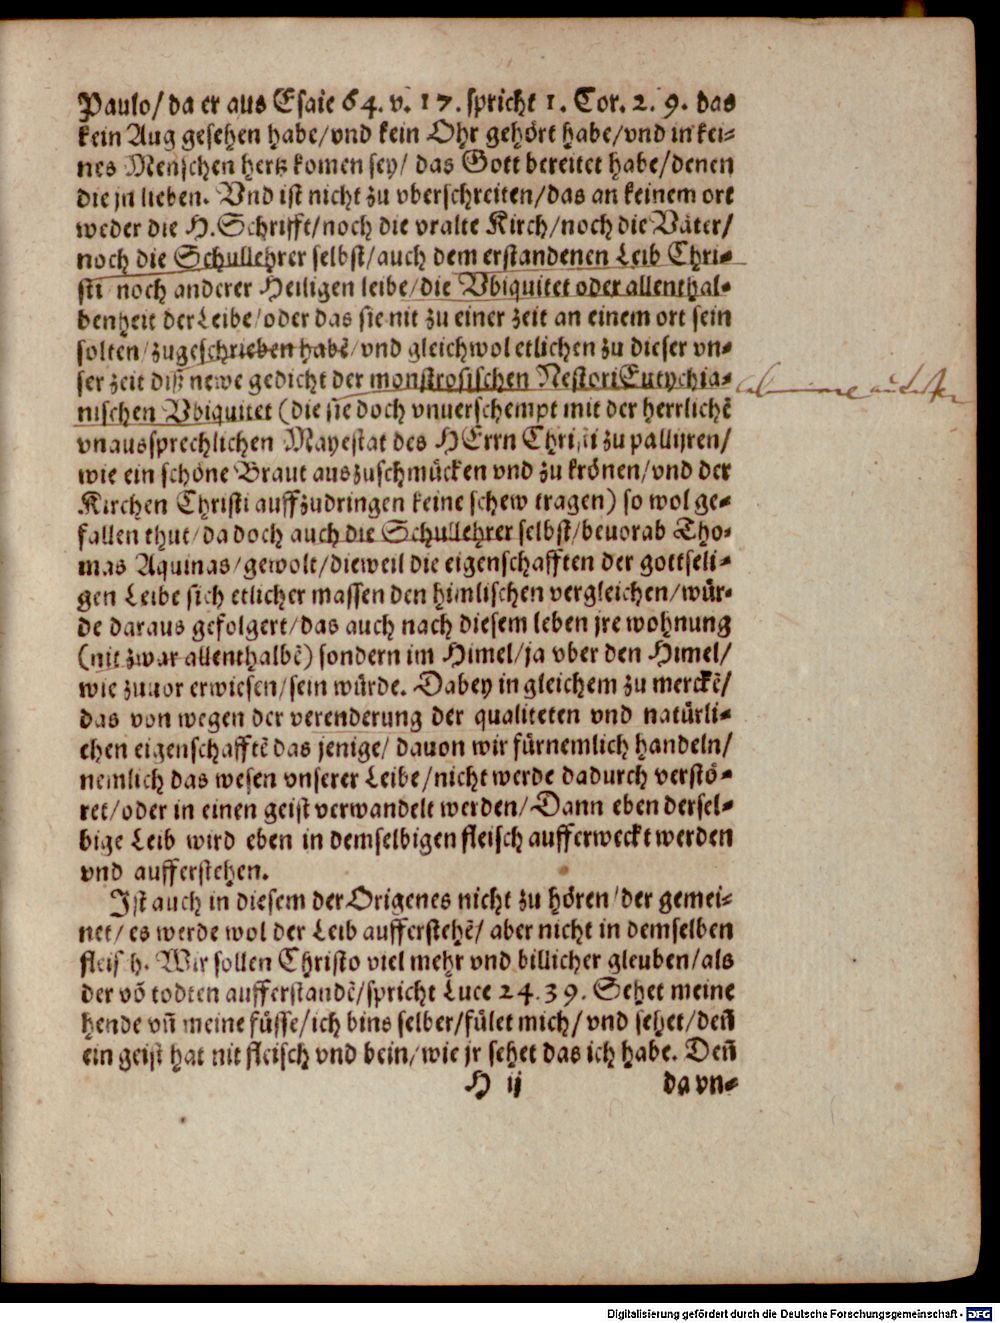 Paulo/ da er aus Esaie 64. v. 17. spricht 1. Cor. 2. 9. das
kein Aug gesehen habe/vnd kein Ohr gehört habe/vnd in kei⸗
nes Menschen hertz komen sey/ das Gott bereitet habe/denen
die jn lieben. Vnd ist nicht zu vberschreiten/das an keinem ort
weder die H. Schrifft/noch die vralte Kirch/noch die Väter/
noch die Schullehrer selbst/auch dem erstandenen Leib Chri⸗
sti noch anderer Heiligen leibe/die Vbiquitet oder allenthal⸗
benheit der Leibe/oder das sie nit zu einer zeit an einem ort sein
solten/zugeschrieben habē/vnd gleichwol etlichen zu dieser vn⸗
ser zeit diß newe gedicht der monstrosischen NestoriEutychia⸗
nischen Vbiquitet (die sie doch vnuerschempt mit der herrlichē
vnaussprechlichen Mayestat des HErrn Christi zu pallijren/
wie ein schöne Braut auszuschmücken vnd zu krönen/vnd der
Kirchen Christi auffzudringen keine schew tragen) so wol ge⸗
fallen thut/da doch auch die Schullehrer selbst/beuorab Tho⸗
mas Aquinas/gewolt/dieweil die eigenschafften der gottseli⸗
gen Leibe sich etlicher massen den himlischen vergleichen/wür⸗
de daraus gefolgert/das auch nach diesem leben jre wohnung
(nit zwar allenthalbē) sondern im Himel/ja vber den Himel/
wie zuuor erwiesen/sein würde. Dabey in gleichem zu merckē/
das von wegen der verenderung der qualiteten vnd natürli⸗
chen eigenschafftē das jenige/ dauon wir fürnemlich handeln/
nemlich das wesen vnserer Leibe/nicht werde dadurch verstö⸗
ret/oder in einen geist verwandelt werden/Dann eben dersel⸗
bige Leib wird eben in demselbigen fleisch aufferweckt werden
vnd aufferstehen.
Ist auch in diesem der Origenes nicht zu hören/der gemei⸗
net/ es werde wol der Leib aufferstehē/ aber nicht in demselben
fleisch. Wir sollen Christo viel mehr vnd billicher gleuben/als
der vō todten aufferstandē/spricht Luce 24. 39. Sehet meine
hende vñ meine füsse/ich bins selber/fület mich/ vnd sehet/deñ
ein geist hat nit fleisch vnd bein/wie jr sehet das ich habe. Deñ
H ij da vn⸗
Digitalisierung gefördert durch die Deutsche Forschungsgemeinschaft - DFG